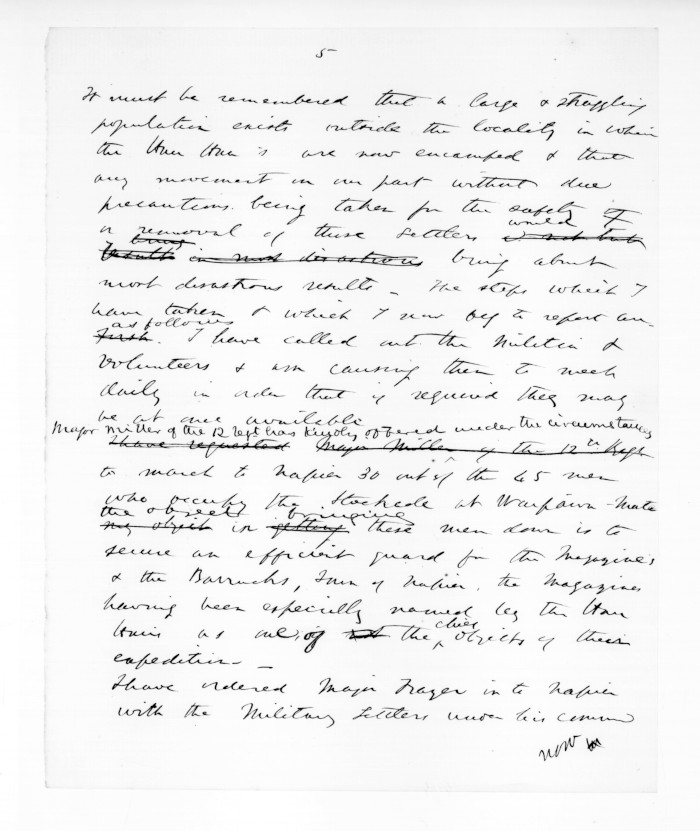 5
It must be remembered that a large & straggling
population exists outside the locality in which
the Hau Hau's are now encamped & that
any movement on our part without due
precautions being taken for the safety of
or removal of these settlers would is not but
bring
results in most disastrous bring about
most disastrous results _ The steps which I
have taken & which I now beg to report are
as follows
first. I have called out the Militia &
Volunteers & am causing them to meet
daily in order that if required they may
be at once available
Major Miller of the 12 Regt has kindly offered under the circumstances
I have requested Major Miller of the 12th Regt
to march to Napier 30 out of the 45 men
who occupy the Stockade at Waipawa-Mate
the object bringing
my object in getting these men down is to
secure an efficient guard for the Magazine's
& the Barracks, Town of Napier, the Magazines
having been especially named by the Hau
Haus as one of the chief objects of their
expedition _
I have ordered Major Frazer in to Napier
with the Military Settlers under his comm
now